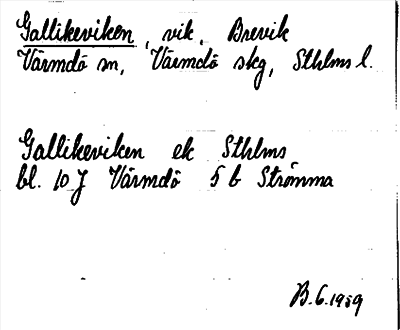 Gallikeviken, vik, Brevik
Värmdö sn, Värmdö skg, Sthlms l.
Gallikeviken ek Sthlms
bl. 10 J Värmdö 5 b Strömma
B.G.1959